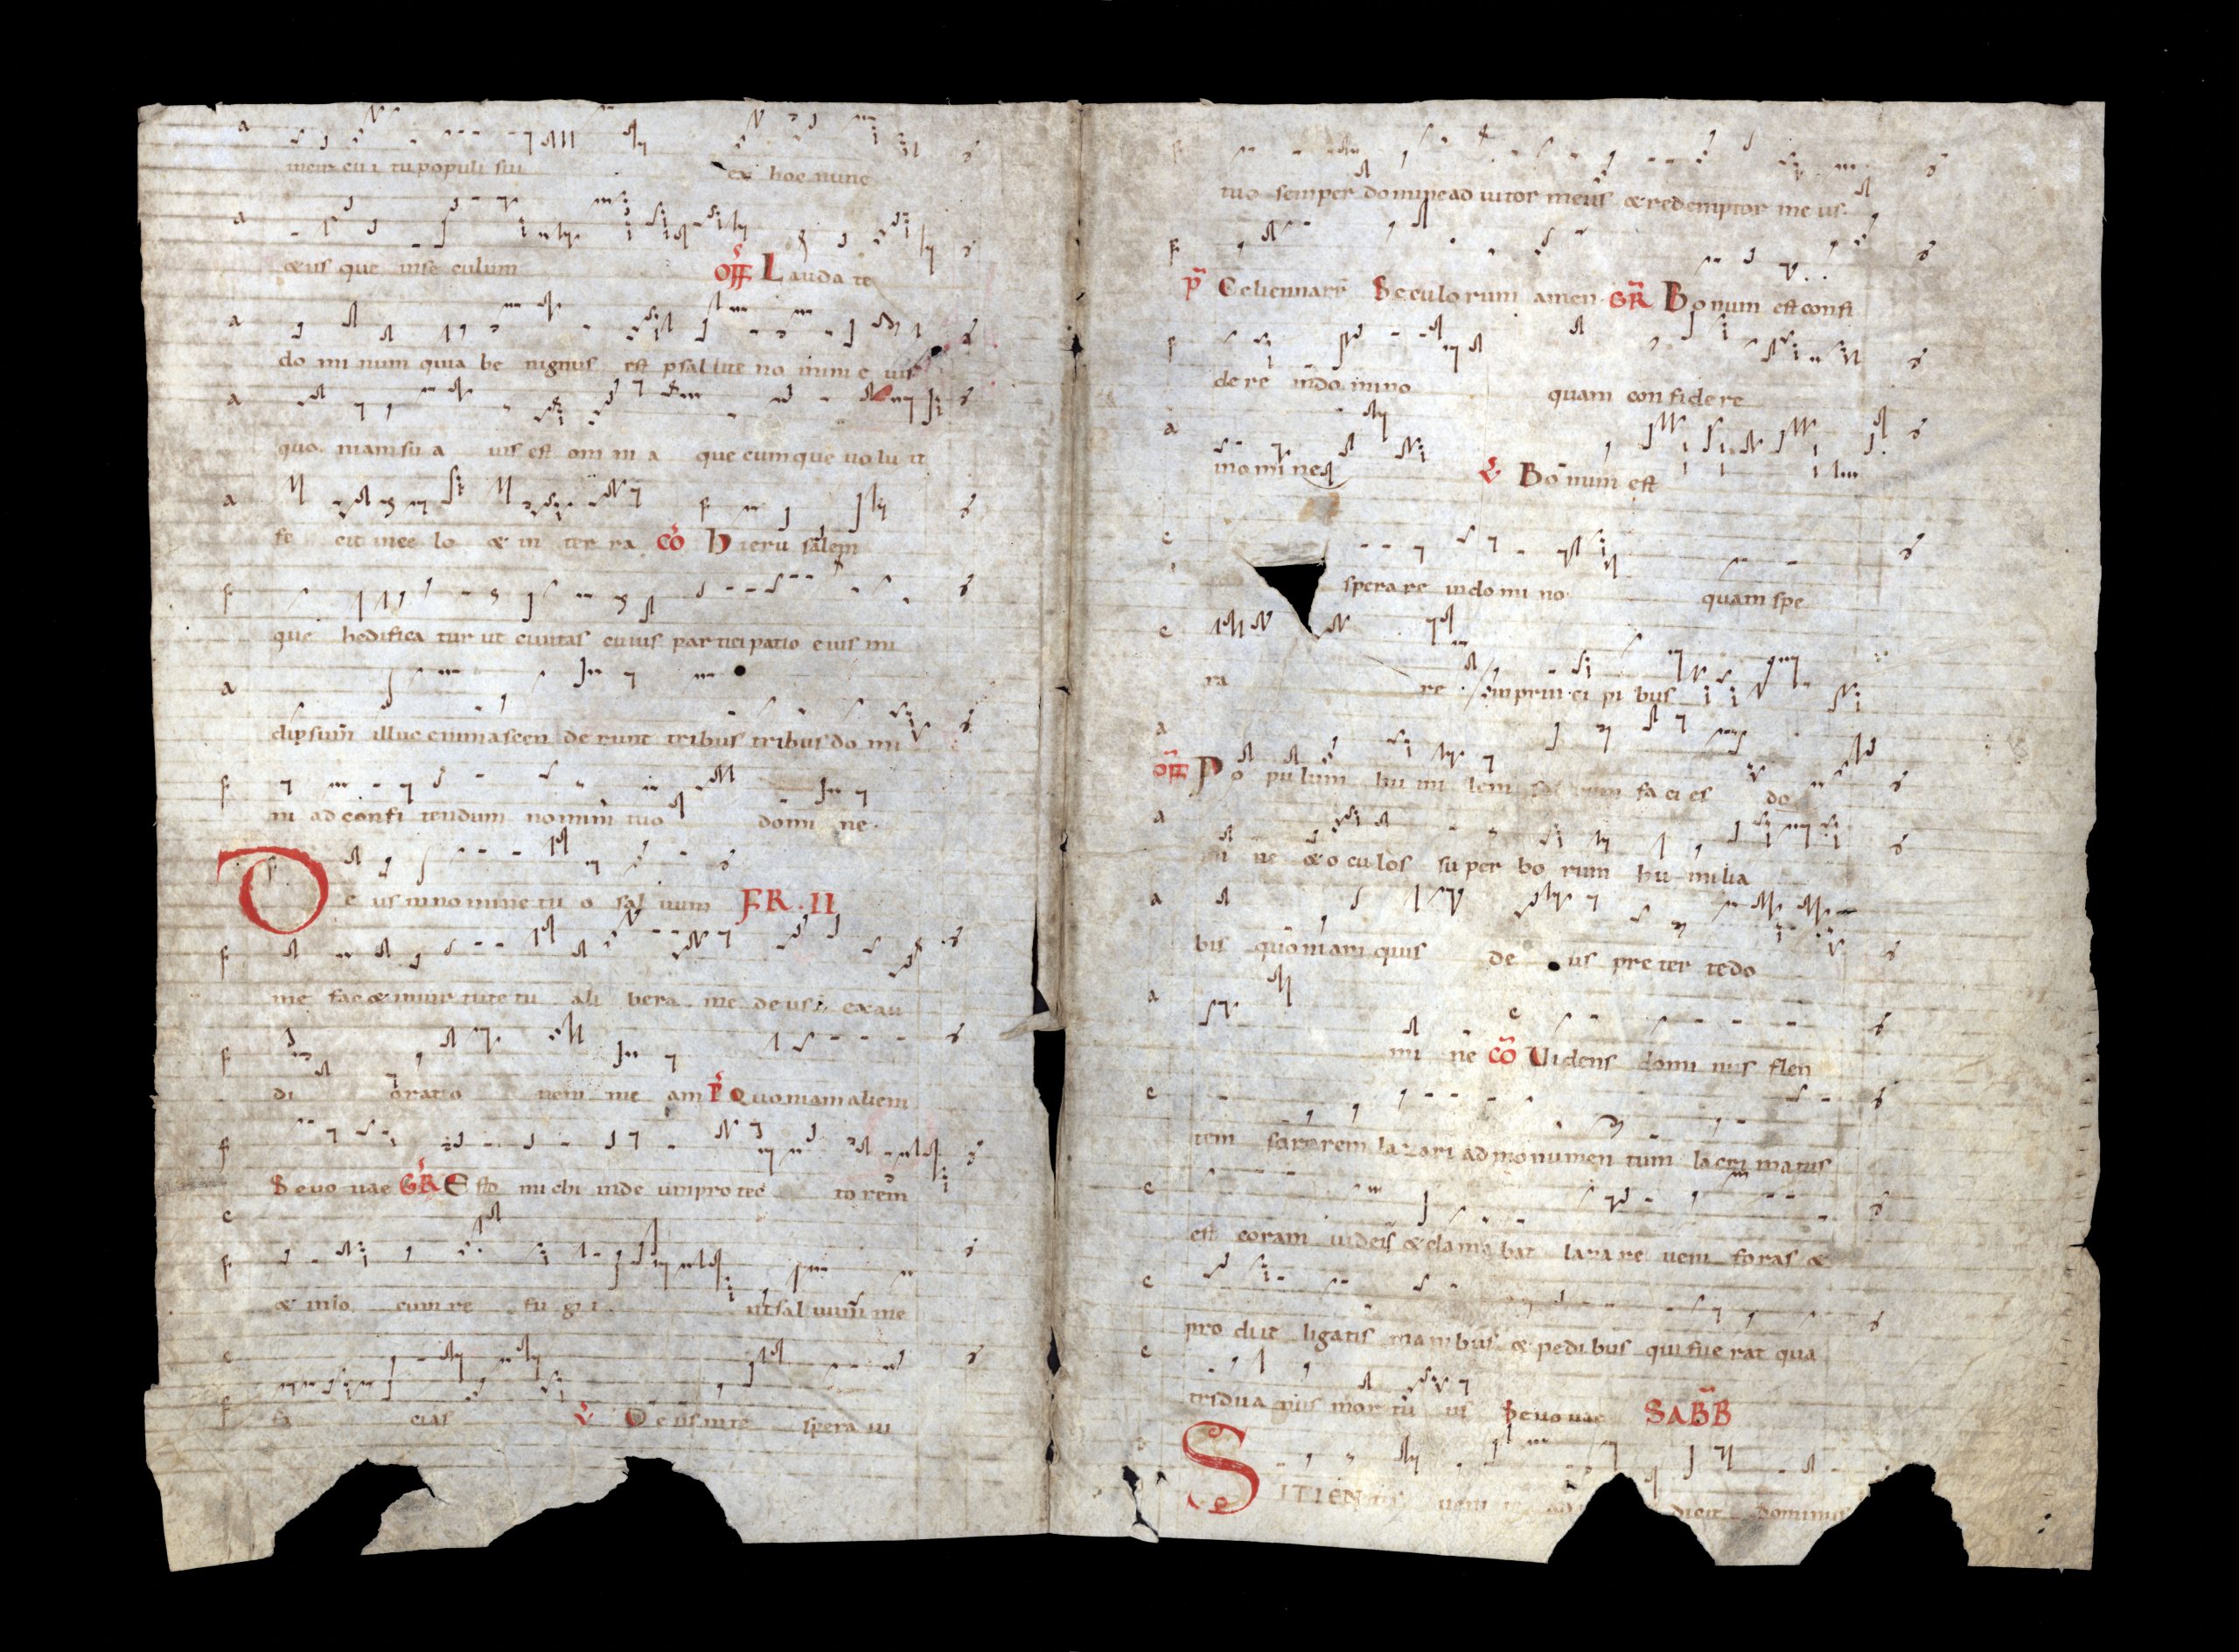 in circuitu populi sui ex hoc nunc
& us que inse culum Off Lauda te
do mi num quia be nignus est psal lite no mini e ius
quo niam su a uis est om ni a que cumque uo lu it
fe cit in ce lo & in ter ra Co Hieru salem
que hedifica tur ut ciuitas cuius par tici patio e ius in i
dipsum illuc enim ascen de runt tribus tribus do mi
ni ad confi tendum nomini tuo domi ne.
De us in nomine tu o sal uum FR. II
me fac & in uir tute tu a li bera me deus exau
di oratio nem me am P Quoniam alieni
Seuo uae GR Esto michi in de um pro tec to rem
& in lo cum re fu gi i ut sal uum me
fa cias V De us in te spera ui
tuo semper domine ad iutor meus & redemptor me us.
P Celi enarr Seculorum amen GR Bonum est confi
de re in domino quam con fide re
in homi ne V Bonum est
sperare in domi no quam spe
ra re in prin ci pi bus
Off Po pulum hu mi lem faci es do
mi ne & o cu los su per bo rum hu milia
bis quoniam quis de us pre ter te do
mi ne Co Uidens domi nus flen
tem sororem lazari ad monumen tum lacri matus
est coram iudeis & clama bat lazare ueni foras &
pro diit ligatis manibus & pedi bus qui fue rat qua
tridua nus mor tu us Seuouae SABB
SITIEN tes ueni te ad dicit dominus